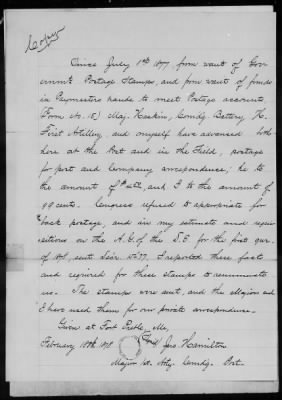 Copy
Since July 1st 1877, from want of Gov-
ernment Postage Stamps, and from want of funds
in Paymasters hands to meet Postage accounts
(Form No. 15) Maj. Haskin, Comdg. Battery, K.
First Artillery, and myself have advanced both
here at the Post and in the Field, postage
for post and Company correspondence; he to
the amount of and I to the amount of
99 cents. Congress refused to appropriate for
back postage, and in my estimate and requi-
sitions on the A.G. of the D.E. for the first qur.
of sent I reported these facts
and required for these stamps to remunerate
us. The stamps were sent, and the Major and
I have used them for our private correspondence.
Given at Fort Preble, Me,
February 18th, 1878 Jno. Hamilton
Major 1st. Arty. Comdg. Post.